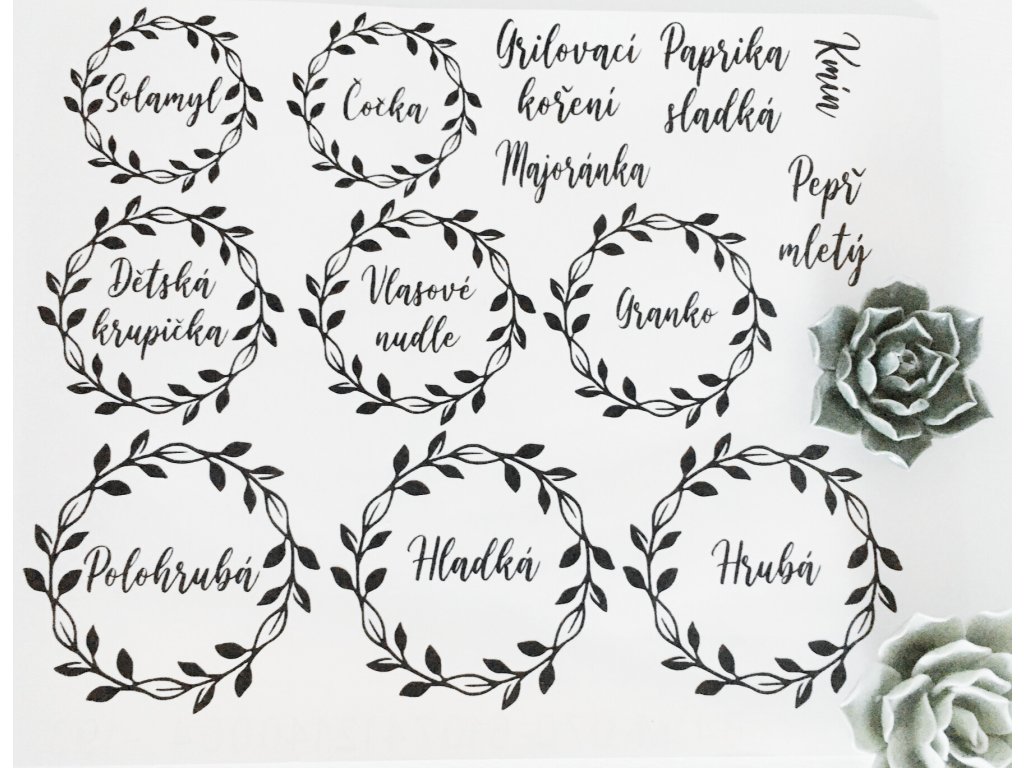 Solamyl
Čočka
Grilovací
koření
Majoránka
Paprika
sladká
Kmín
Pepř
mletý
Dětská
krupička
Vlasové
nudle
Granko
Polohrubá
Hladká
Hrubá